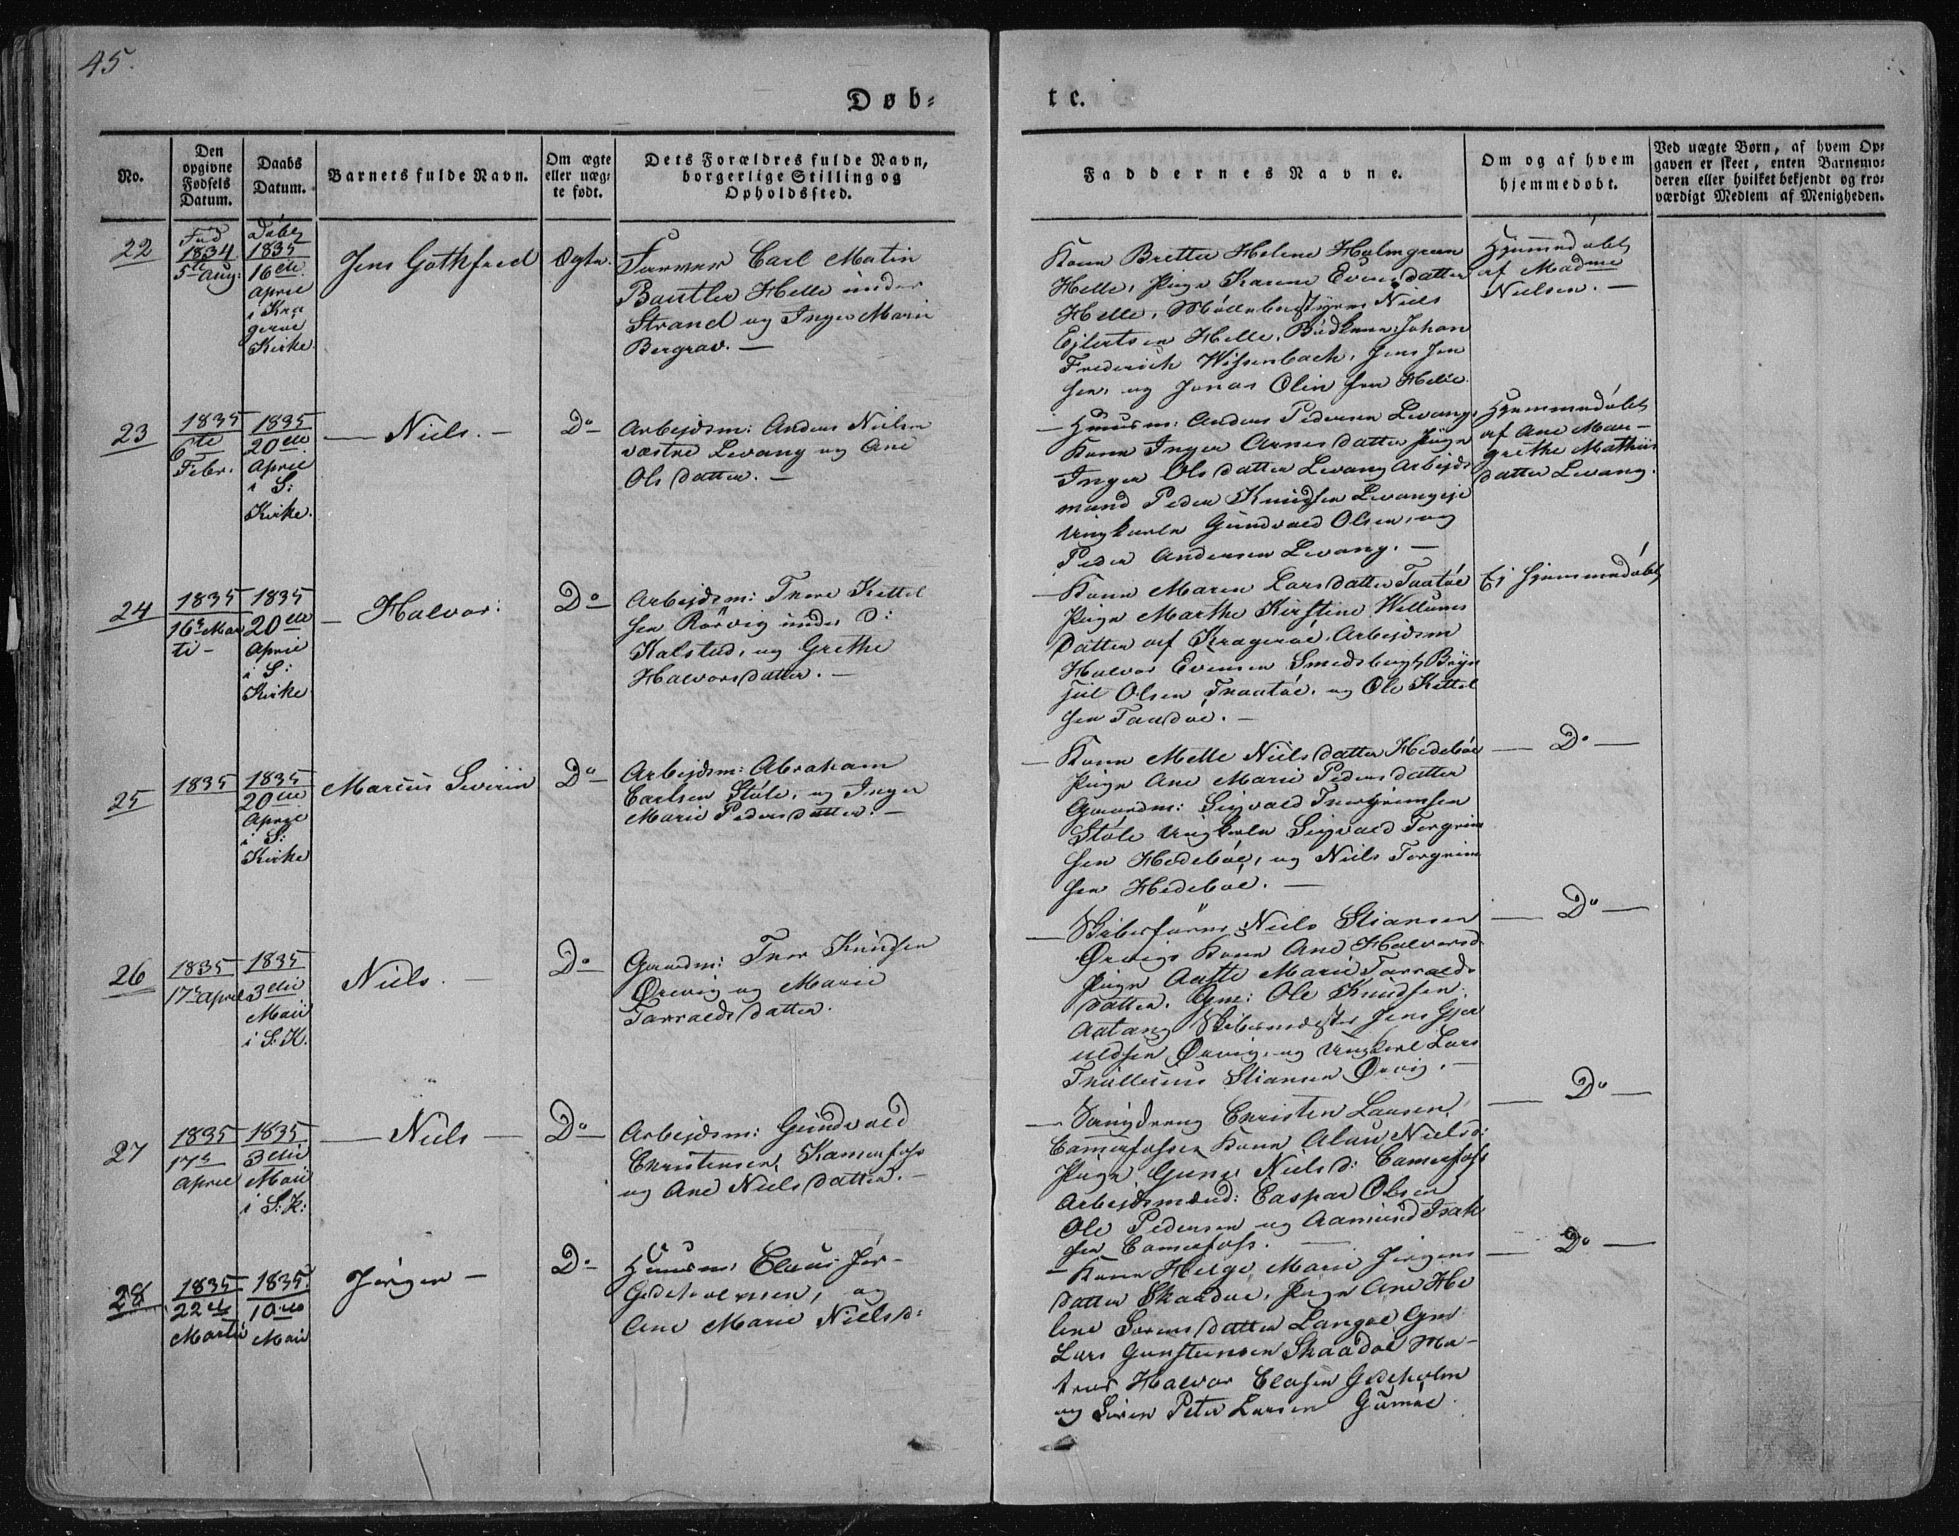 45.
Døb-
te.
No.
Den
opgivne
Fødsels
Datum.
Daabs
Datum.
Barnets fulde Navn.
Om ægte
eller uæg-
te født.
Dets Forældres fulde Navn,
borgerlige Stilling og
Opholdssted.
Faddernes Navne.
Om og af hvem
hjemmedøbt.
Ved uægte Børn, af hvem Op-
gaven er skeet, enten Barnemo-
deren eller hvilket bekjendt og tro-
værdigt Medlem af Menigheden.
22
Fød
1834
5te Aug:
Døbt
1835
16de
April
i Kra
gerøe
Kirke.
Jens Gothfred
Ægte.
Farver Carl Matin
Bautler Helle under
Strand og Inger Marie
Bergrav. —
Kone Bretta Helene Holmgreen
Helle, Pige Karen Evensdatter
Helle, Møllebestyrer Niels
Ejlertsen Helle, Bødker Johan
Frederich Wissenbach, Jens Jen
sen, og Jonas Olin fra Helle.
Hjemmedøbt
af Madme
Nielsen. —
23
1835
6te
Febr.
1835
20de
April
i S:
Kirke.
— Niels. —
Do
Arbejdsm: Anders Nielsen
væstre Levang og Ane
Olsdatter. —
— Huusm: Anders Pedersen Levang,
Kone Inger Arnesdatter Pige
Inger Olsdatter Levang Arbejds
mand Peder Knudsen Levangeje
Ungkarle Gundvald Olsen, og
Peder Andersen Levang. —
Hjemmedøbt
af Ane Mar-
grethe Mathiis
datter Levang.
24
1835
16de Mar
ti —
1835
20de
April
i S:
Kirke
— Halvor:
Do
Arbejdsm: Thore Kittel
sen Rørvig under D:
Kalstad, og Grethe
Halvorsdatter. —
— Kone Maren Larsdatter Taatøe
Pige Marthe Kirstine Willums
datter af Kragerøe, Arbejdsm
Halvor Evensen Smedsbugt, Bryn
jul Olsen Traatøe, og Ole Kittel
sen Taadøe. —
Ej hjemmedøbt
25
1835
1835
20de
April
i S:
Kirke
Marcus Severin
Do
Arbejdsm: Abraham
Carlsen Støle, og Inger
Marie Pedersdatter. —
— Kone Mette Nielsdatter Hedebøe
Pige Ane Marie Pedersdatter
Gaardm: Sigvald Thorgrimsen
Støle Ungkarle Sigvald Torgrim
sen Hedebøe, og Niels Torgrim
sen Hedebøe. —
— Do —
26
1835
17de April
1835
3die
Maii
i S. K.
Niels. —
Do
Gaardm: Thor Knudsen
Ørevig og Marie
Tarraldsdatter.
— Niels Stiansen
Ørvig, Kone Ane Halvorsd.
Pige Aaste Marie Tarralds
datter. Gm: Ole Knudsen
Aatang Jens Gjer
uldsen Ørvig, og Ungkarl Lars
Stiansen Ørvig. —
— Do —
27
1835
17de
April
1835
3die
Maii
i S: K:
— Niels —
Do
Arbejdsm: Gundvald
Christensen, Kamerfoss
og Ane Nielsdatter. —
— Christen Larsen,
Camerfossen Kone Alau Nielsd:
Pige Gune Nielsd: Camerfoss
Arbejdsmænd: Caspar Olsen
Ole Pedersen og Aamund Isak
sen Camerfoss. —
— Do —
28
1835
22de
Martii
1835
10de
Maii
Jørgen —
Do
Huusm: Claus Jør-
Gedeholmen, og
Ane Marie Nielsd:
— Kone Helge Marie Jørgens
datter Skaadøe, Pige Ane He
lene Sørensdatter Langøe Gm:
Lars Gunsteensen Skaadøe Ma-
tros Halvor Clasen Gedeholm
og Søren Peter Larsen Gumøe.
— Do —